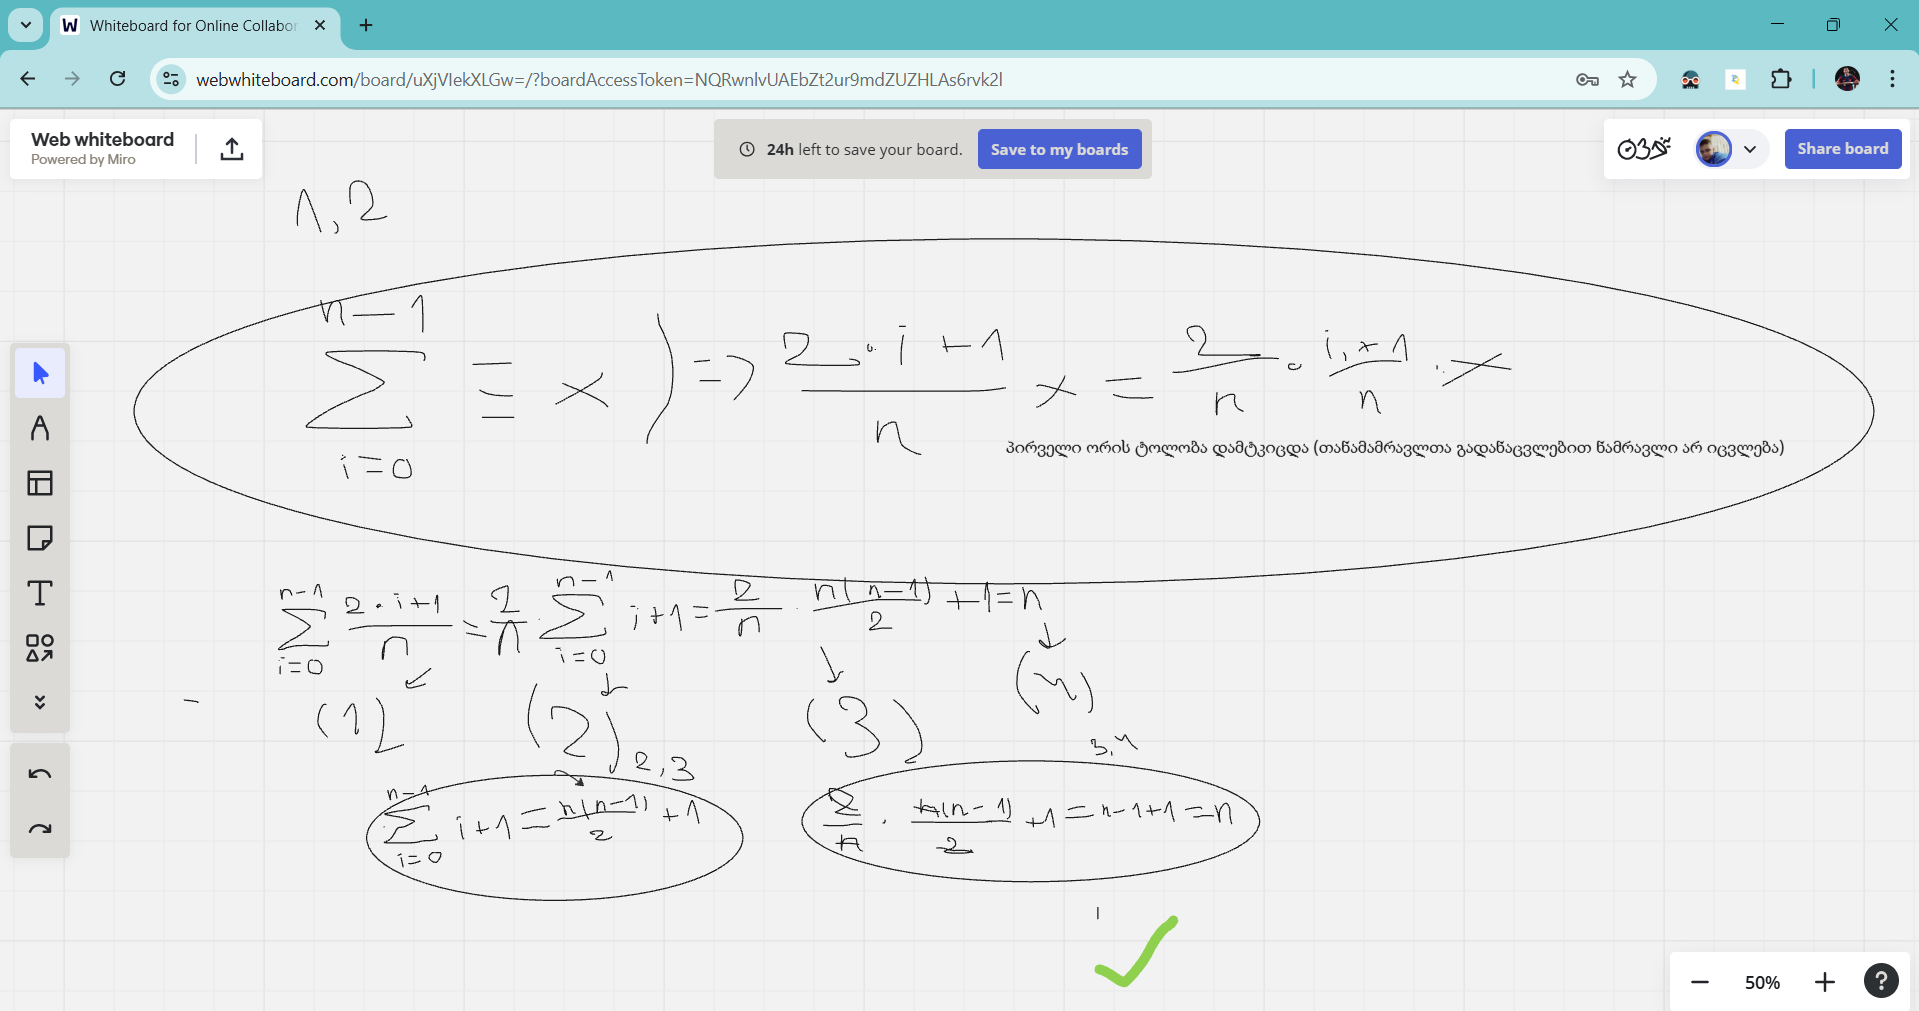 Whiteboard for Online Collabor
webwhiteboard.com/board/uXjVIekXLGw=/?boardAccessToken=NQRwnlvUAEbZt2ur9mdZUZHLAs6rvk2l
Web whiteboard
Powered by Miro
24h left to save your board.
Save to my boards
Share board
1,2
n-1
∑ = x ) => 2·i+1/n x = 2/n · i+1/n · x
i=0
პირველი ორის ტოლობა დამტკიცდა (თანამამრავლთა გადანაცვლებით ნამრავლი არ იცვლება)
n-1 n-1
∑ 2·i+1/n = 2/n · ∑ i+1 = 2/n · n(n-1)/2 +1 = n
i=0 i=0
(1) (2) (3) (4)
2,3 3,4
n-1
∑ i+1 = n(n-1)/2 +1
i=0
2/n · n(n-1)/2 +1 = n-1+1 = n
50%